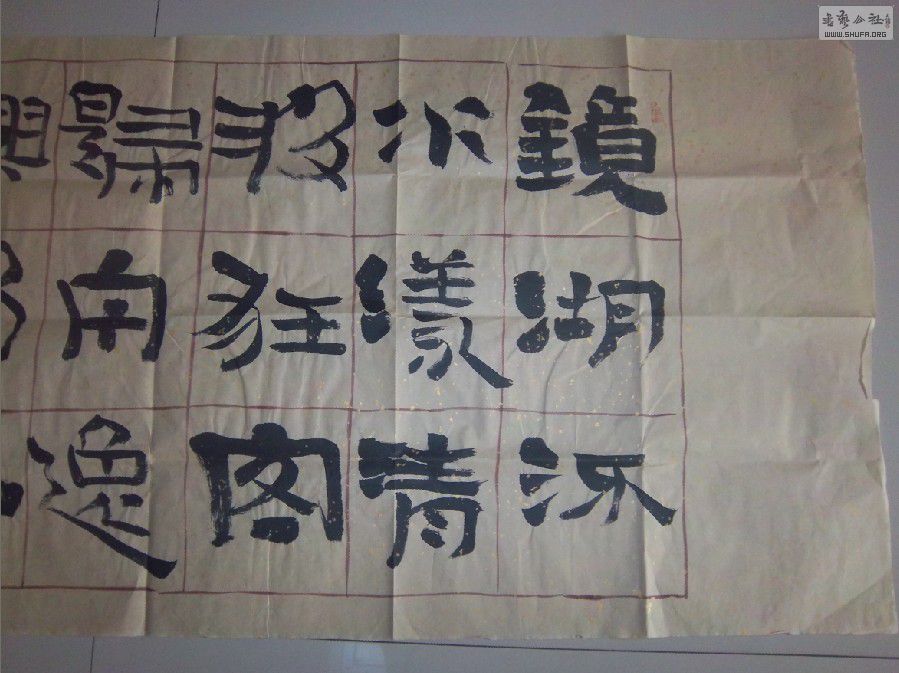 鏡湖流
水漾清
波狂客
歸舟逸
書藝公社
WWW.SHUFA.ORG